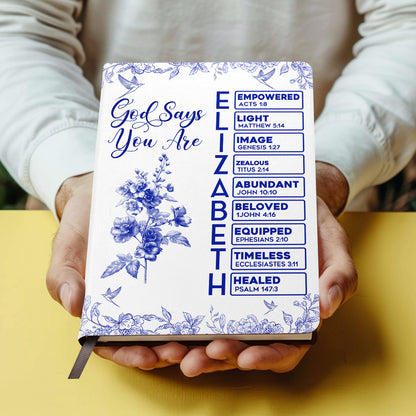 God Says
You Are
ELIZABETH
EMPOWERED
ACTS 1:8
LIGHT
MATTHEW 5:14
IMAGE
GENESIS 1:27
ZEALOUS
TITUS 2:14
ABUNDANT
JOHN 10:10
BELOVED
1JOHN 4:16
EQUIPPED
EPHESIANS 2:10
TIMELESS
ECCLESIASTES 3:11
HEALED
PSALM 147:3